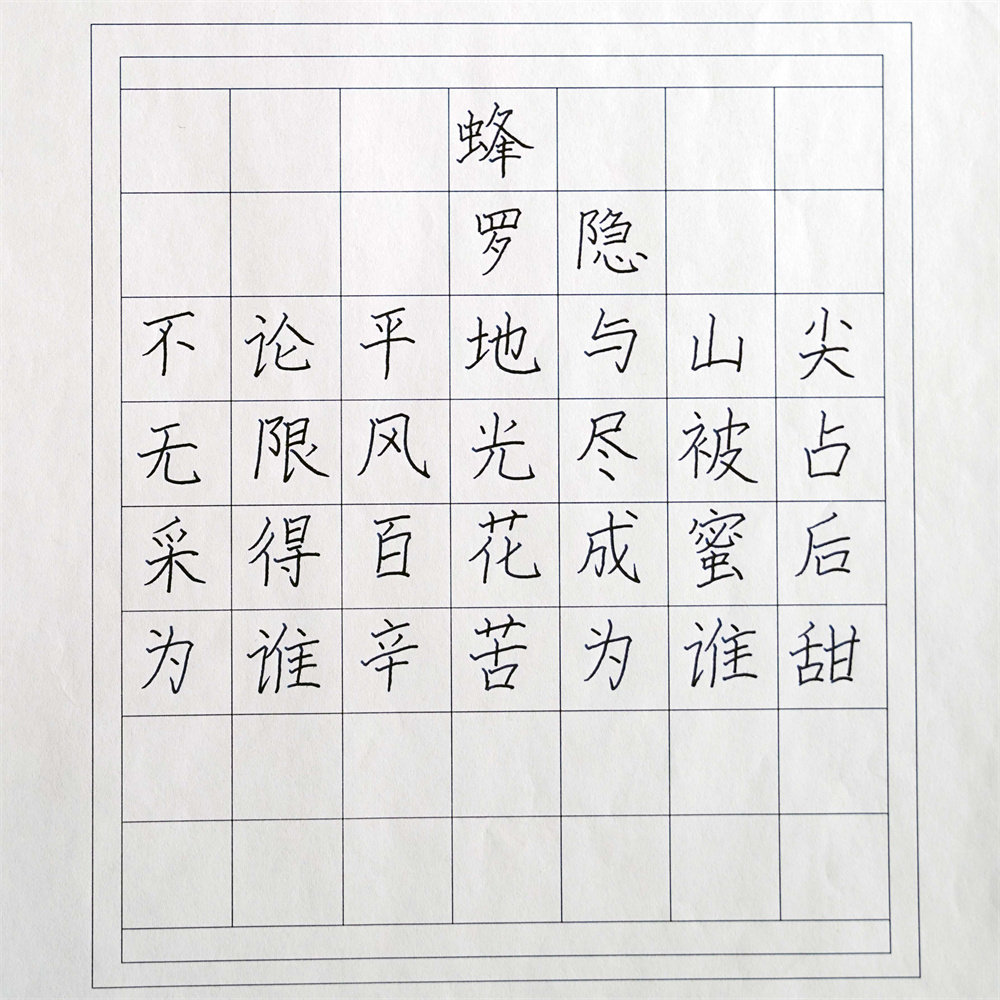 蜂
罗隐
不论平地与山尖
无限风光尽被占
采得百花成蜜后
为谁辛苦为谁甜